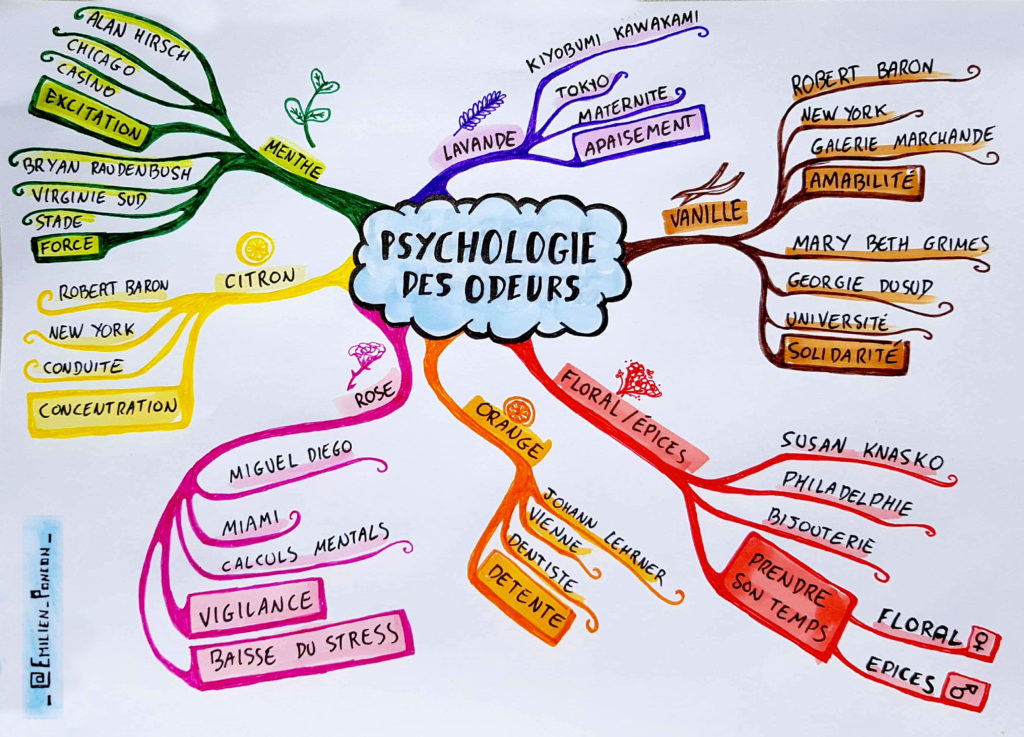 PSYCHOLOGIE
DES ODEURS
MENTHE
ALAN HIRSCH
CHICAGO
CASINO
EXCITATION
BRYAN RAUDENBUSH
VIRGINIE SUD
STADE
FORCE
LAVANDE
KIYOBUMI KAWAKAMI
TOKYO
MATERNITE
APAISEMENT
VANILLE
ROBERT BARON
NEW YORK
GALERIE MARCHANDE
AMABILITÉ
MARY BETH GRIMES
GEORGIE DU SUD
UNIVERSITÉ
SOLIDARITÉ
CITRON
ROBERT BARON
NEW YORK
CONDUITE
CONCENTRATION
ROSE
MIGUEL DIEGO
MIAMI
CALCULS MENTALS
VIGILANCE
BAISSE DU STRESS
ORANGE
JOHANN LEHRNER
VIENNE
DENTISTE
DETENTE
FLORAL/ÉPICES
SUSAN KNASKO
PHILADELPHIE
BIJOUTERIE
PRENDRE
SON TEMPS
FLORAL ♀
EPICES ♂
_ @EMILIEN_PONCON _